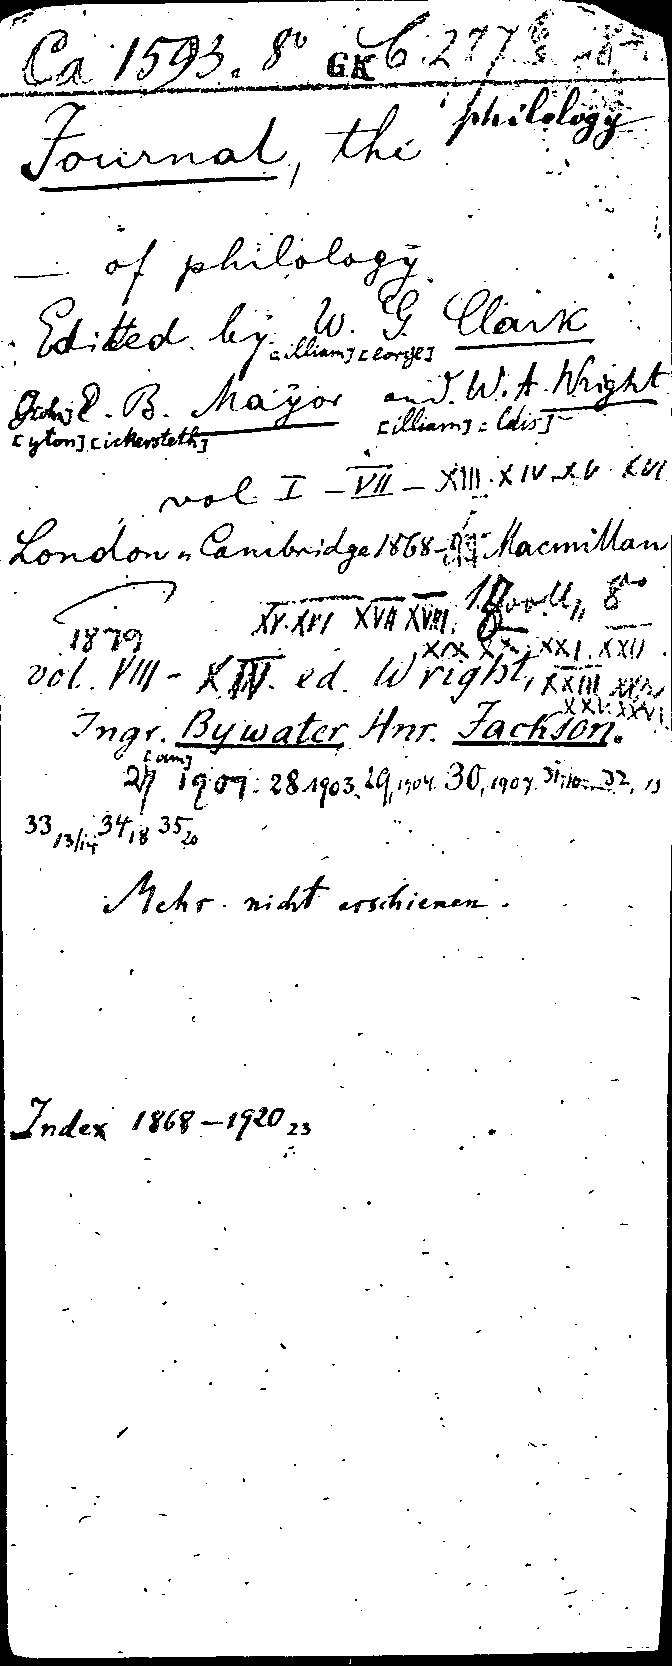 Ca 1593. 8° GK C. 277
philology
Journal, the
— of philology
Edited by W. G. Clark
[illiam] [eorge]
J[ohn] E. B. Mayor and W. A. Wright
[yton] [ickersteth] [illiam] [ldis]
vol I – VII – XIII. XIV. XV. XVI
London u. Cambridge 1868- Macmillan
8°
1879 XV. XVI XVII XVIII.
XIX XX, XXI. XXII
vol. VIII - XIV. ed. Wright, XXIII XXIV,
XXV. XXVI
Ingr. Bywater Hnr. Jackson.
[am]
27 1901. 28 1903. 29, 1904. 30, 1907. 31, 10. 32, 13
33 13/14 34 18 35 20
Mehr nicht erschienen.
Index 1868–1920 23